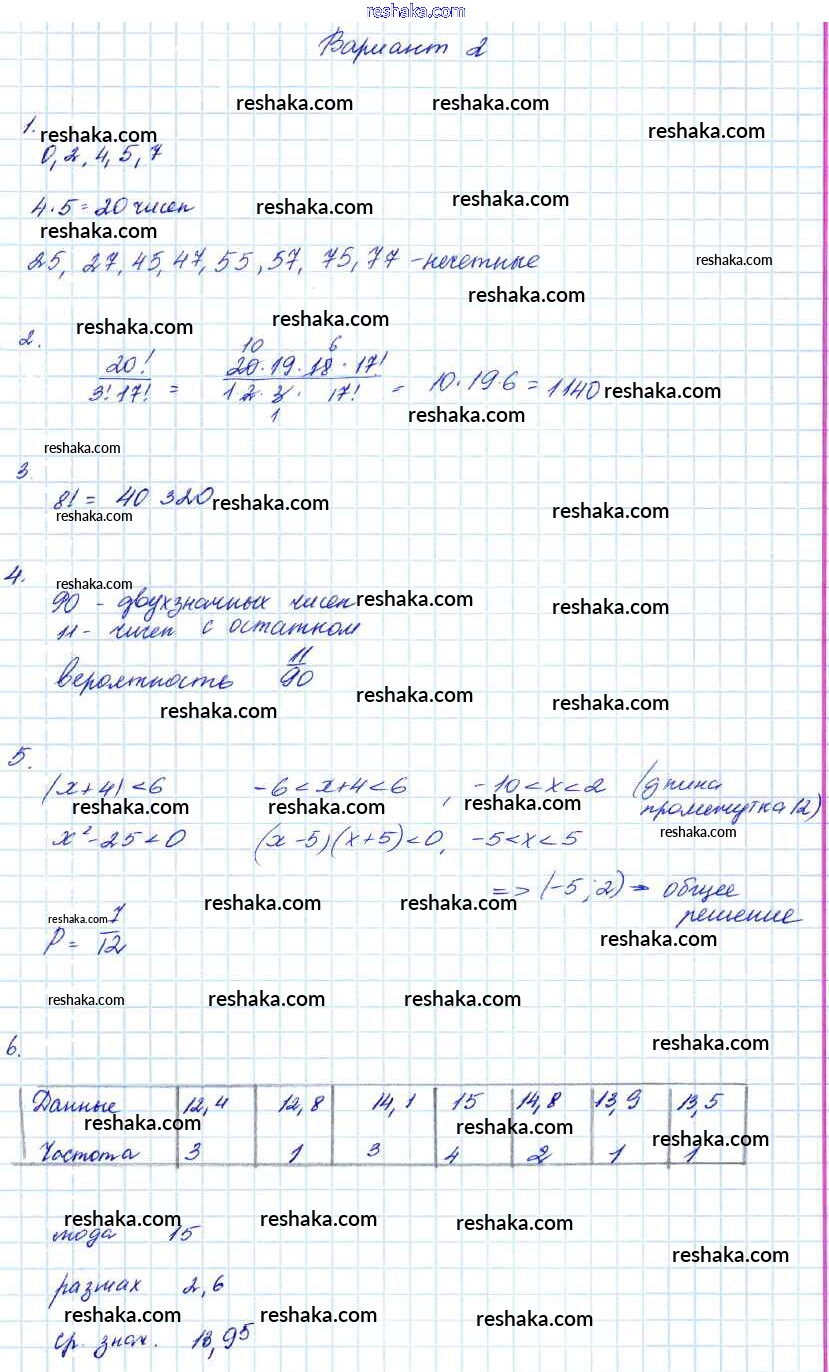 reshaka.com
Вариант 2
reshaka.com reshaka.com
1. reshaka.com reshaka.com
0, 2, 4, 5, 7
4·5=20 чисел reshaka.com reshaka.com
reshaka.com
25, 27, 45, 47, 55, 57, 75, 77 - нечетные reshaka.com
reshaka.com
2. reshaka.com reshaka.com
20!/3!17! = 20·19·18·17!/1·2·3·17! = 10·19·6 = 1140 reshaka.com
10 6
1 reshaka.com
reshaka.com
3.
8! = 40 320 reshaka.com reshaka.com
reshaka.com
4. reshaka.com
90 - двухзначных чисел reshaka.com reshaka.com
11 - чисел с остатком
вероятность 11/90
reshaka.com reshaka.com reshaka.com
5.
|x+4|<6 -6<x+4<6, -10<x<2 (длина
reshaka.com reshaka.com reshaka.com промежутка 12)
x²-25<0 (x-5)(x+5)<0, -5<x<5 reshaka.com
=> (-5; 2) - общее
reshaka.com reshaka.com решение
reshaka.com
P = 7/12 reshaka.com
reshaka.com reshaka.com reshaka.com
6. reshaka.com
Данные 12,4 12,8 14,1 15 14,8 13,9 13,5
reshaka.com reshaka.com reshaka.com
Частота 3 1 3 4 2 1 1
reshaka.com reshaka.com reshaka.com
мода 15
reshaka.com
размах 2,6
reshaka.com reshaka.com reshaka.com
ср. знач. 13,95